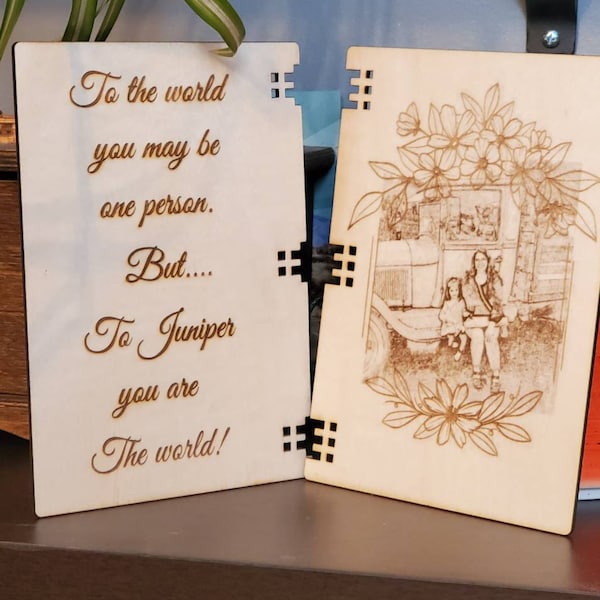 To the world
you may be
one person.
But....
To Juniper
you are
The world!